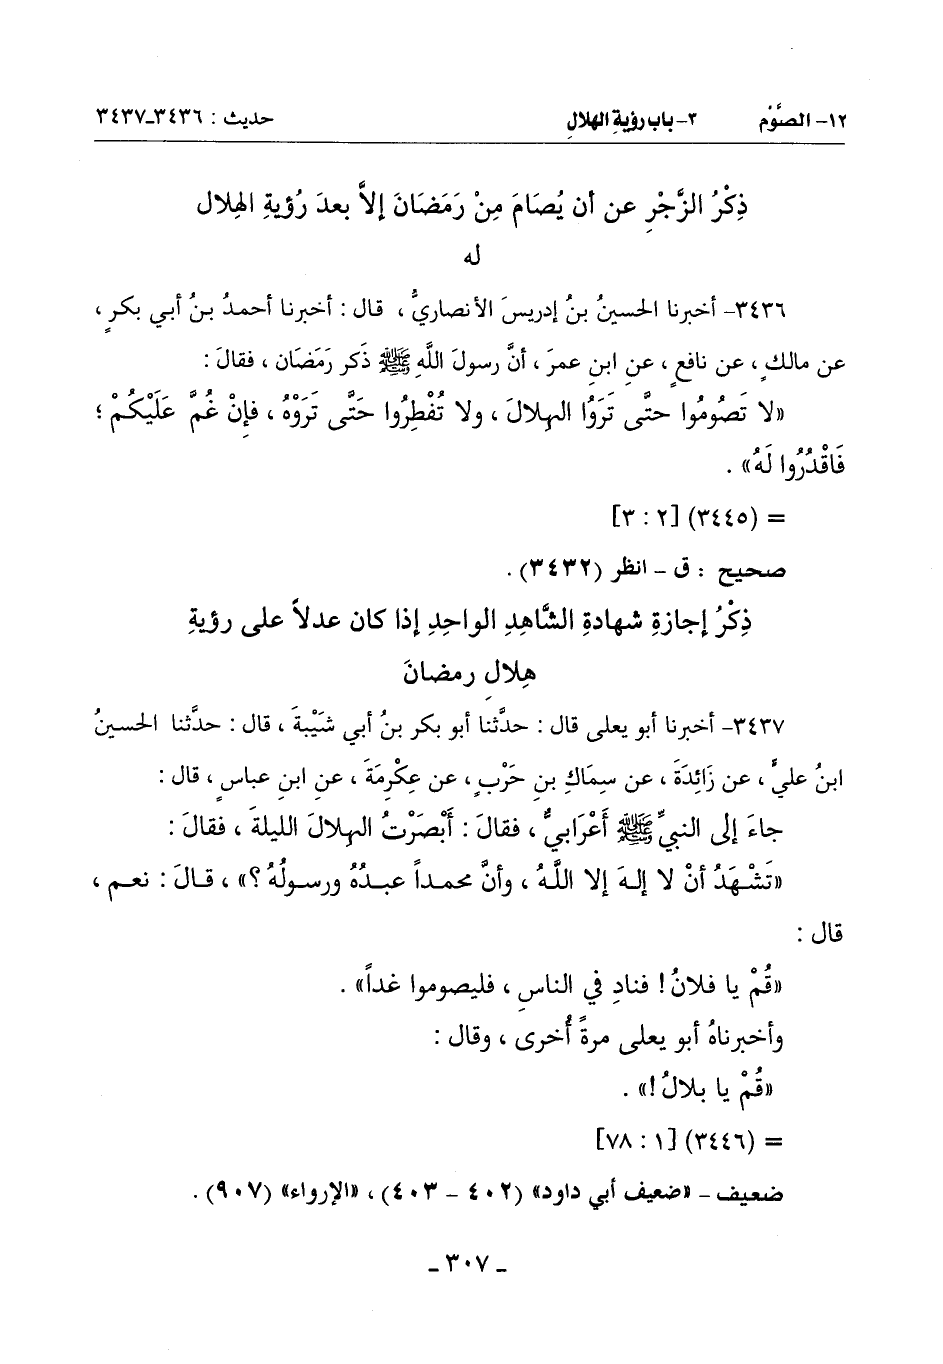 ١٢- الصَّوْم ٢- باب رؤيةِ الهلالِ حديث : ٣٤٣٦ـ٣٤٣٧
ذِكْرُ الزَّجْرِ عن أن يُصَامَ مِنْ رَمَضَانَ إلاَّ بعدَ رُؤيةِ الهِلال
له
٣٤٣٦- أخبرنا الحسينُ بنُ إدريسَ الأنصاريُّ ، قال : أخبرنا أحمدُ بنُ أبي بكرٍ ،
عن مالكٍ ، عن نافعٍ ، عنِ ابنِ عمرَ ، أنَّ رسولَ اللَّهِ ﷺ ذَكر رَمَضَان ، فقالَ :
«لا تَصُومُوا حتَّى تَرَوُا الهلالَ ، ولا تُفْطِرُوا حَتَّى تَرَوْهُ ، فإنْ غُمَّ عَلَيْكُمْ ؛
فَاقْدُرُوا لَهُ» .
= (٣٤٤٥) [٢ : ٣]
صحيح : ق - انظر (٣٤٣٢) .
ذِكْرُ إجازةِ شهادةِ الشَّاهِدِ الواحِدِ إذا كان عدلاً على رؤيةِ
هِلالِ رمضانَ
٣٤٣٧- أخبرنا أبو يعلى قال : حدَّثنا أبو بكر بنُ أبي شَيْبةَ ، قال : حدَّثنا الحسينُ
ابنُ عليٍّ ، عن زَائِدَةَ ، عن سِمَاكِ بنِ حَرْبٍ ، عن عِكْرِمَةَ ، عن ابنِ عباسٍ ، قال :
جاءَ إلى النبيِّ ﷺ أَعْرَابيٌّ ، فقالَ : أَبْصَرْتُ الهلالَ الليلةَ ، فقالَ :
«تَشْهَدُ أنْ لا إلهَ إلا اللَّهُ ، وأنَّ محمداً عبدُهُ ورسولُهُ ؟» ، قالَ : نعم ،
قال :
«قُمْ يا فلانُ ! فنادِ في الناسِ ، فليصوموا غداً» .
وأخبرناهُ أبو يعلى مرةً أُخرى ، وقال :
«قُمْ يا بلالُ !» .
= (٣٤٤٦) [١ : ٧٨]
ضعيف - «ضعيف أبي داود» (٤٠٢ - ٤٠٣) ، «الإرواء» (٩٠٧) .
ـ ٣٠٧ ـ